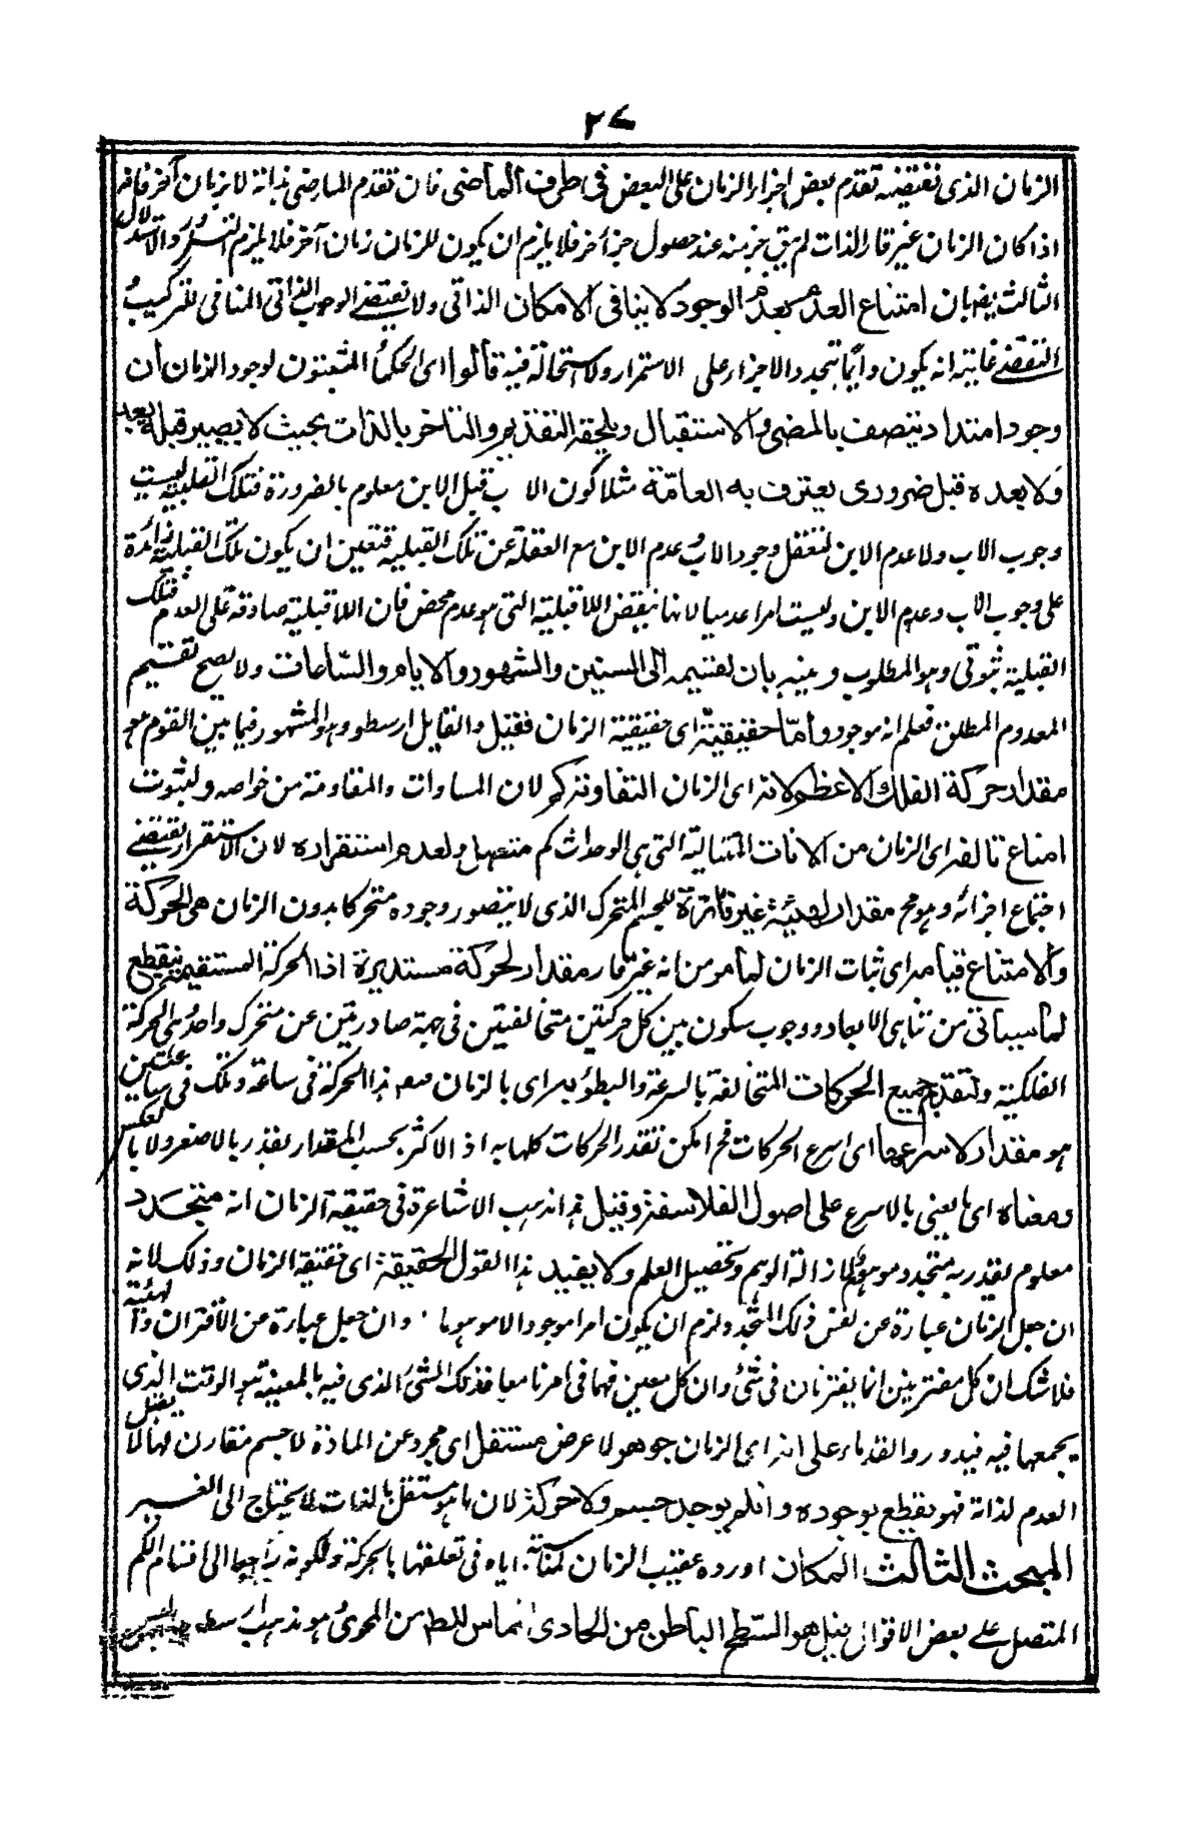 ٢٧
الزمان الذى تقتضيه تقدم بعض اجزاء الزمان على البعض فى طرف الماضى فان تقدم الماضى بذاته لا بزمان آخر فانه
اذا كان الزمان غير قار الذات لم يبق جزء منه عند حصول جزأ خر فلا يلزم ان يكون للزمان زمان آخر فلا يلزم التسلسل والاستدلال
الثالث يضربان امتناع العدم بعد الوجود لا ينافى الامكان الذاتى ولا يقتضى الوجوب الذاتى المنافى للتركيب
التقضى غايته انه يكون دائما يتجدد الاجزاء على الاستمرار ولا استحالة فيه قالوا اى الحكما المثبتون لوجود الزمان ان
وجود امتداد يتصف بالمضى والاستقبال ويلحقه التقدم والتاخر بالذات بحيث لا يصير قبله بعد
ولا بعده قبل ضرورى يعترف به العامة مثلا كون الاب قبل الابن معلوم بالضرورة فتلك القبلية ليست
وجوب الاب ولا عدم الابن لتعقل وجود الاب وعدم الابن مع الغفلة عن تلك القبلية فتعين ان يكون تلك القبلية زائدة
على وجوب الاب وعدم الابن وليست امرا عدميا لانها نقيض اللاقبلية التى هو عدم محض فان اللاقبلية صادقة على العدم فتلك
القبلية ثبوتى وهو المطلوب وينبه بان تقسيمه الى السنين والشهور والايام والساعات ولا يصح تقسيم
المعدوم المطلق فعلم انه موجود وأمّا حقيقيته اى حقيقية الزمان فقيل والقايل ارسطو وهو المشهور فيما بين القوم هو
مقدار حركة الفلك الاعظم لانه اى الزمان التفاوته كم لان المساوات والمقاومة من خواصه ولثبوت
امتناع تالفه اى الزمان من الانات المتتالية التى هى الوحداث كم متصل ولعدم استقراره لان الاستقرار يقتضى
اجتماع اجزائه وهو مح مقدار لهيئة غير قارة للجسم المتحرك الذى لا يتصور وجوده متحركا بدون الزمان هى الحركة
والامتناع قيامه اى ثبات الزمان لما مر من انه غير قار مقدار لحركة مستديرة اذا الحركة المستقيمة ينقطع
لما سيأتى من تناهى الابعاد ووجوب سكون بين كل حركتين متخالفتين فى جهة صادرتين عن متحرك واحد هى الحركة
الفلكية ولتقدير جميع الحركات المتخالفة بالسرعة والبطؤ به اى بالزمان هذا الحركة فى ساعة وتلك فى ساعتين
هو مقدار لاسرعها اى اسرع الحركات فح امكن تقدر الحركات كلها به اذ الاكثر بحسب المقدار يقدر بالاصغر ولا بالعكس
ومعناه اى ما يعنى بالاسرع على اصول الفلاسفة وقيل هذا مذهب الاشاعرة فى حقيقة الزمان انه متجدد
معلوم يقدر به متجدد موهوم لازالة الوهم وتحصيل العلم ولا يفيد هذا القول الحقيقة اى حقيقة الزمان وذلك لانه
ان جعل الزمان عبارة عن نفس ذلك المتجدد لزم ان يكون امرا موجودا لا موهوما وان جعل عبارة عن الاقتران والهيئة
فلا شك ان كل مقترنين انما يقترنان فى شئ وان كل معين فهما فى امر ما معا فذلك الشئ الذى فيه بالمعية هو الوقت الذى
يجمعها فيه فيدور والقدماء على انه اى الزمان جوهر لا عرض مستقل اى مجرد عن المادة لا جسم مقارن لها لا يقبل
العدم لذاته فهو يقطع بوجوده وان لم يوجد جسم ولا حركة لان ما هو مستقل بالذات لا يحتاج الى الغير
المبحث الثالث المكان اورده عقيب الزمان لمشابهته اياه فى تعلقها بالحركة ولكونه راجعا الى اقسام الكم
المتصل على بعض الاقوال قيل هو السطح الباطن من الحاوى المماس للسط من المحوى هو مذهب ارسطو